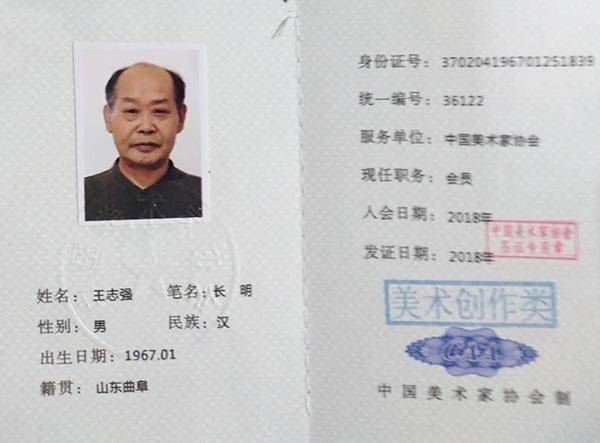 姓名：王志强 笔名：长 明
性别：男 民族：汉
出生日期：1967.01
籍贯：山东曲阜
身份证号：370204196701251839
统一编号：36122
服务单位：中国美术家协会
现任职务：会员
入会日期：2018年
发证日期：2018年
中国美术家协会
签证专用章
美术创作类
CAA
中国美术家协会制